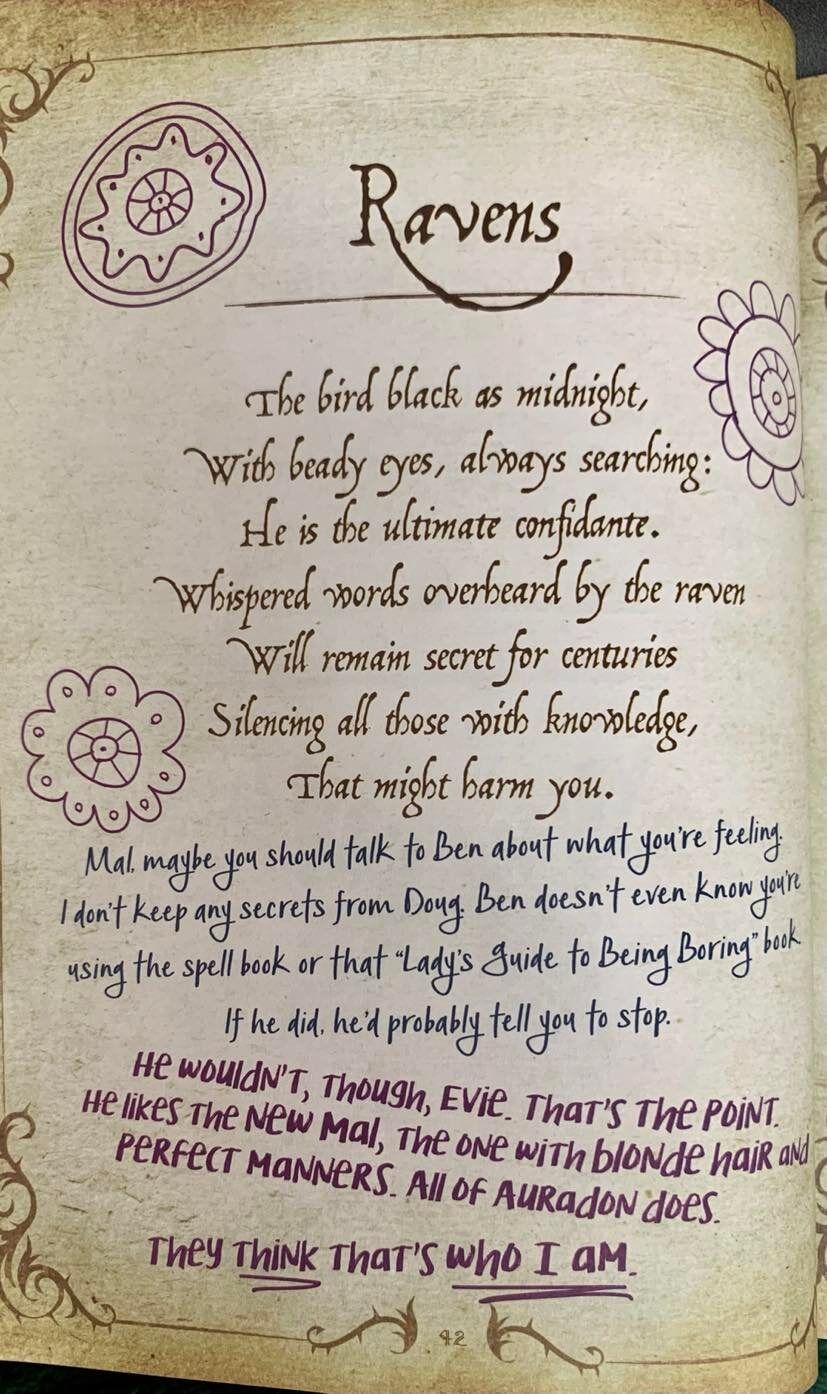 Ravens
The bird black as midnight,
With beady eyes, always searching:
He is the ultimate confidante.
Whispered words overheard by the raven
Will remain secret for centuries
Silencing all those with knowledge,
That might harm you.
Mal, maybe you should talk to Ben about what you're feeling.
I don't keep any secrets from Doug. Ben doesn't even know you're
using the spell book or that “Lady's Guide to Being Boring” book.
If he did, he'd probably tell you to stop.
He wouldn't, though, Evie. That's the point.
He likes the new Mal, the one with blonde hair and
perfect manners. All of Auradon does.
They think that's who I am.
42